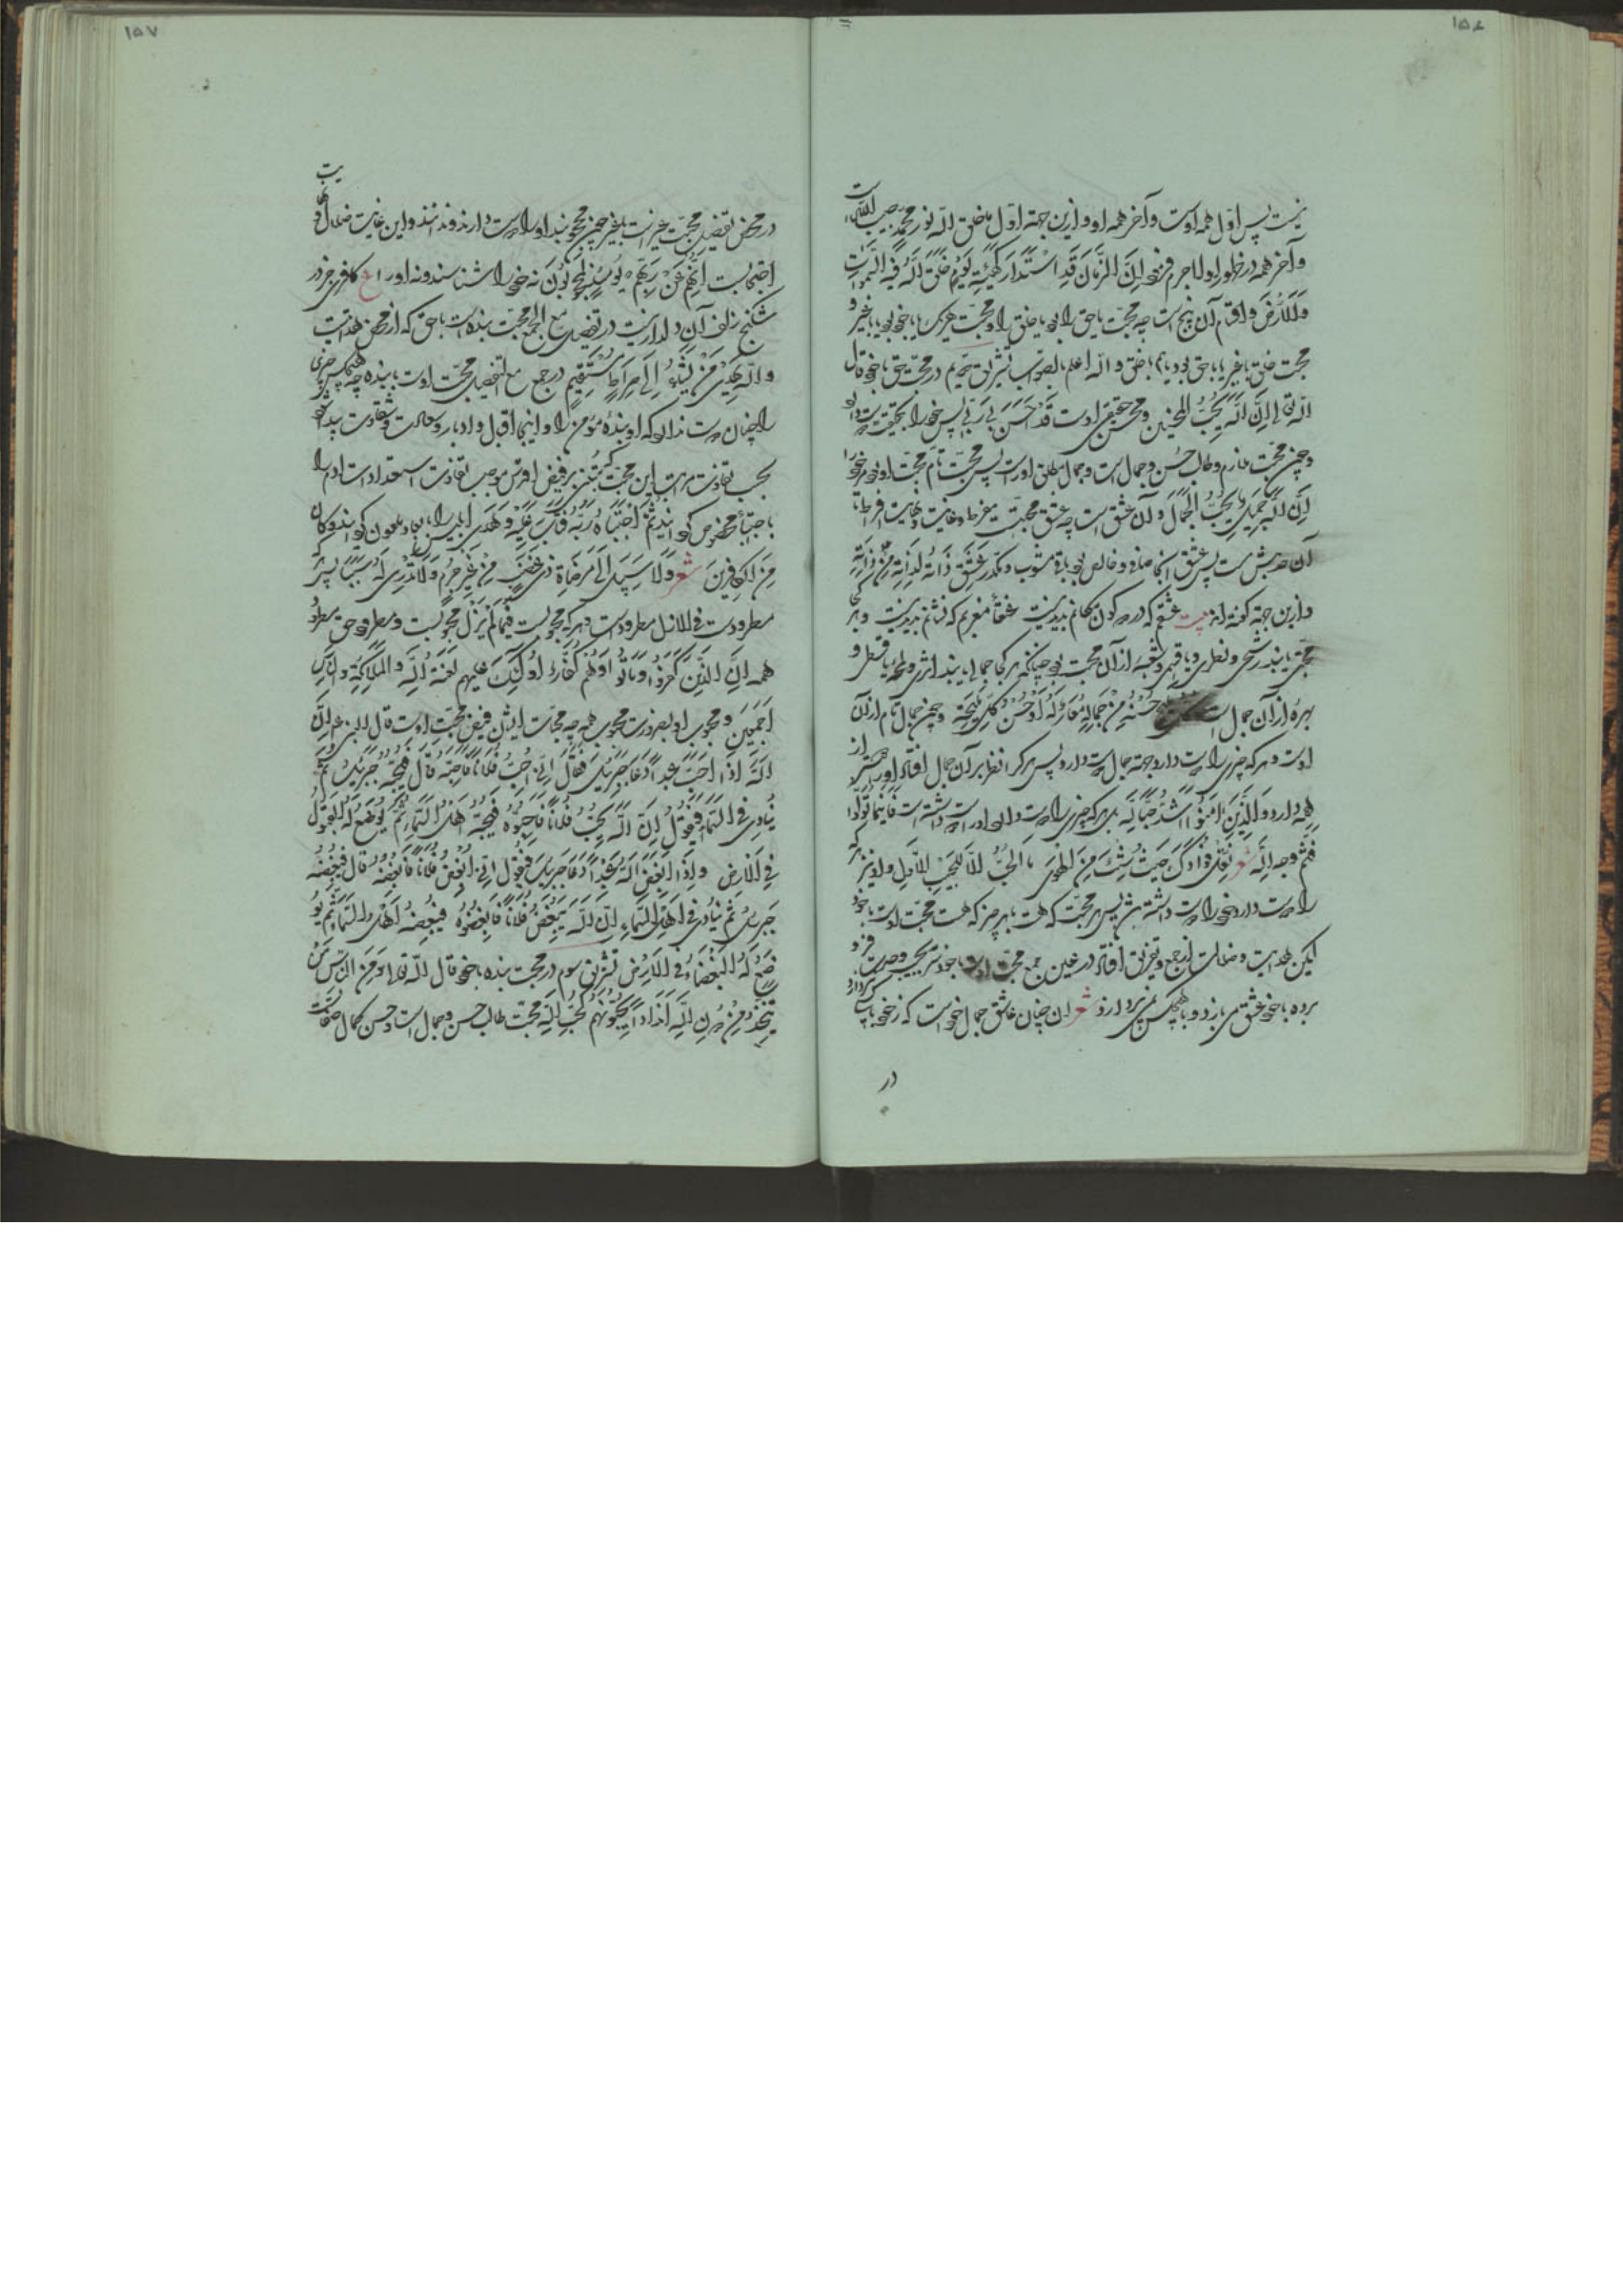 ۱۵۶
نیست پس اول همه اوست و آخر همه او و ازین جهة اول ما خلق الله نور محمد حبیب الله است
و آخر همه در ظهور او لاجرم فرمود اِنَّ الزَّمانَ قَدِ اسْتَدارَ کَهَیْئَةِ یَوْمٍ خَلَقَ اللهُ فیهِ السَّمواتِ
وَالْاَرْضَ و اقسام آن پنج است چه محبت یا حق را بود یا خلق را و محبت هر یک یا با خود بود یا با غیر و
محبت خلق با غیر یا با حق بود یا با خلق و الله اعلم بالصواب تشریق دویم در محبت حق با خود قال
الله تعالی اِنَّ اللهَ یُحِبُّ الْمُحْسِنینَ و محسن حقیقی اوست قَدْ اَحْسَنَ بی رَبّی پس خود را بحقیقت دوست دارد
و چون محبت ملازم و طالب حُسن و جمال است و جمال مطلق اوراست پس محبت تام محبت او بود مر خود را
اِنَّ اللهَ جَمیلٌ یُحِبُّ الْجَمالَ و آن عشق است چه عشق محبت مفرط و غایت و نهایت افراط
آن حد بیش است پس عشق آنجا صافی و خالص بود و باقی مشوب و مکدر عَشِقَ ذاتُهُ لِذاتِهِ مِنْ ذاتِهِ
و ازین جهة گفته‌اند بیت عشقم که در دو کون مکانم پدید نیست عنقاء مغربم که نشانم پدید نیست و هر کجا
محبتی یابند رشحی و قطره و یا قسمی و شعبهٔ از آن محبت بود چنانکه هر کجا جمالی یابند اثری و لمحهٔ یا قسطی و
بهرهٔ از آن جمال است حُسْنُهُ مِنْ جَمالِهِ مُعارٌ لَهُ اَوْ حُسْنُ کُلِّ مَلیحَةٍ و چون جمال تام از آن
اوست و هر که چیزی را دوست دارد جهة جمال دوست دارد پس هر کرا نظر بر آن جمال افتاد او را دوستر از
همه دارد وَالَّذینَ امَنُوا اَشَدُّ حُبّاً لِلّهِ بل هر که چیزی را دوست دارد او را دوست داشته است فَاَیْنَما تُوَلُّوا
فَثَمَّ وجه الله شعر نَقِّلْ فُؤادَکَ حَیْثُ شِئْتَ مِنَ الْهَوی مَا الْحُبُّ اِلّا لِلْحَبیبِ الْاَوَّلِ و او نیز هر که
را دوست دارد خود را دوست داشته باشد پس هر محبت که هست با هر چیز که هست محبت اوست با خود
لیکن هدایت و ضلالت از جمع و تفریق افتاد در عین جمع محبت اوست با خود سر بجیب وحدت فرو
برده با خود عشق می‌بازد و با هیچکس نمی‌پردازد شعر آن چنان عاشق جمال خود است که ز خود با کسی نپردازد
در
۱۵۷
در محض تفصیل محبت غیر است با غیر چون محجوبند او را دوست ندارند و ندانند و این غایت ضلال و نهایت
احتجابست اِنَّهُمْ عَنْ رَبِّهِمْ یَوْمَئِذٍ لَمَحْجُوبُونَ نه خود را شناسند و نه او را ع کافری جز در
شکنج زلف آن دلدار نیست در تفصیل مع الجمع محبت بنده است با حق که از محض هدایت
وَاللهُ یَهْدی مَنْ یَشاءُ اِلی صِراطٍ مُسْتَقیمٍ در جمع مع التفصیل محبت اوست با بنده چه هیچکس چیزی
را چنان دوست ندارد که او بندهٔ مؤمن را و اینجا اقبال و ادبار و سعادت و شقاوت پیدا شود
بحسب تفاوت مراتب این محبت که مُبتنی بر فیض اقدس و موجب تفاوت استعداد است آدم را
باجتبا مخصوص گردانید ثُمَّ اجْتَباهُ رَبُّهُ فَتابَ عَلَیْهِ وَهَدی ابلیس را بابا و ملعون گردانید وَکانَ
مِنَ الْکافِرینَ شعر وَلا سَبیلَ اِلی مَرْضاةِ ذی غَضَبٍ مِنْ غَیْرِ جُرْمٍ وَلا نَدْری لَهُ سَبَباً پس هر که
مطرودست فی الازل مطرودست و هر که محبوبست فیما لَمْ یَزَلْ محبوبست و مطرود حق مطرود
همه اِنَّ الَّذینَ کَفَرُوا وَماتُوا وَهُمْ کُفّارٌ اُولئِکَ عَلَیْهِمْ لَعْنَةُ اللهِ وَالْمَلائِکَةِ وَالنّاسِ
اَجْمَعینَ و محبوب او بضرورت محبوب همه چه محبات ایشان فیض محبت اوست قال النبی عم اِنَّ
اللهَ اِذا اَحَبَّ عَبداً دَعا جَبْرَئیلَ فَقالَ اِنّی اُحِبُّ فُلاناً فَاَحِبَّهُ قالَ فَیُحِبُّهُ جَبْرَئیلُ ثُمَّ
یُنادی فِی السَّماءِ فَیَقُولُ اِنَّ اللهَ یُحِبُّ فُلاناً فَاَحِبُّوهُ فَیُحِبُّهُ اَهْلُ السَّماءِ ثُمَّ یُوضَعُ لَهُ الْقَبُولُ
فِی الْاَرْضِ وَاِذا اَبْغَضَ اللهُ عَبْداً دَعا جَبْرَئیلَ فَیَقُولُ اِنّی اُبْغِضُ فُلاناً فَاَبْغِضْهُ قالَ فَیُبْغِضُهُ
جَبْرَئیلُ ثُمَّ یُنادی فی اَهْلِ السَّماءِ اِنَّ اللهَ یُبْغِضُ فُلاناً فَاَبْغِضُوهُ فَیُبْغِضُهُ اَهْلُ السَّماءِ ثُمَّ یُو
ضَعُ لَهُ الْبَغْضاءُ فِی الْاَرْضِ تشریق سوم در محبت بنده با خود قال الله تعالی وَمِنَ النّاسِ مَنْ
یَتَّخِذُ مِنْ دُونِ اللهِ اَنْداداً یُحِبُّونَهُمْ کَحُبِّ اللهِ محبت طالب حسن و جمال است و حسن کمال صفات